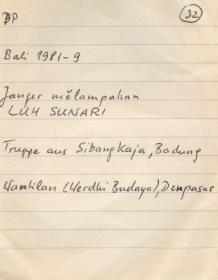 32
Bali 1981-9
Janger mělampahan
LUH SUNARI
Truppe aus Sibangkaja, Badung
Wantilan (Werdhi Budaya), Denpasar